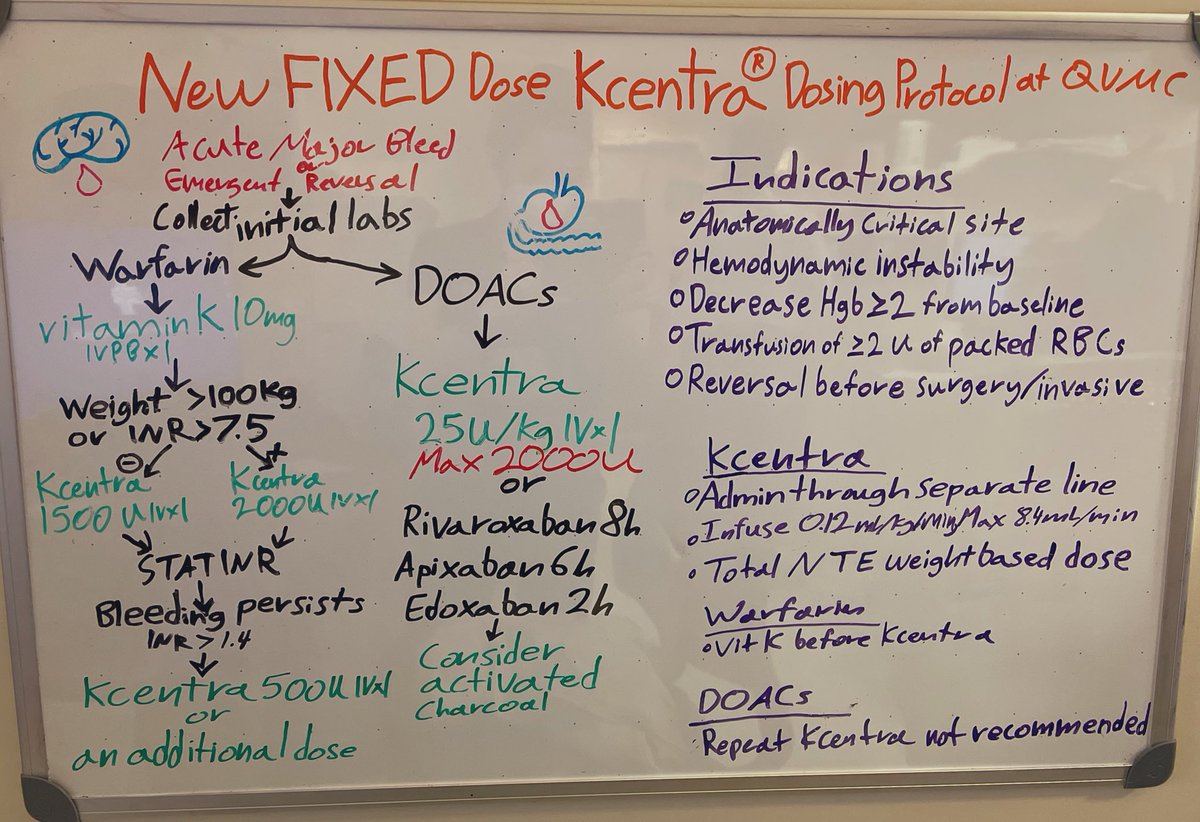 New FIXED Dose Kcentra® Dosing Protocol at QVMC
Acute Major Bleed
or
Emergent Reversal
Collect initial labs
Warfarin
vitamin K 10mg
IVPB x1
Weight >100kg
or INR>7.5
⊖
+
Kcentra
1500 U IV x1
Kcentra
2000U IV x1
STAT INR
Bleeding persists
INR > 1.4
Kcentra 500U IV x1
or
an additional dose
DOACs
Kcentra
25U/kg IV x1
Max 2000U
or
Rivaroxaban 8h
Apixaban 6h
Edoxaban 2h
Consider
activated
charcoal
Indications
Anatomically critical site
Hemodynamic instability
Decrease Hgb ≥2 from baseline
Transfusion of ≥2 U of packed RBCs
Reversal before surgery/invasive
Kcentra
Admin through separate line
Infuse 0.12 ml/kg/min, Max 8.4mL/min
Total NTE weight based dose
Warfarin
Vit K before Kcentra
DOACs
Repeat Kcentra not recommended